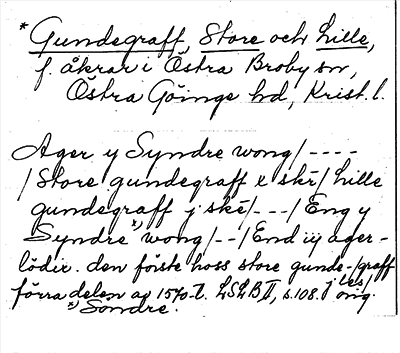 * Gundegraff, Store och Lille,
f. åkrar i Östra Broby sn,
Östra Göinge hd, Krist. l.
Ager y Syndre wong/----
/Store gundegraff x skr/Lille
gundegraff j skr/---/Eng y
Syndre x) wong/--/End iij ager-
lödir. den förste hoss store gunde-/graff
förra delen av 1570-t. LSLB II, s.108. j les/ orig.
x) Sondre.